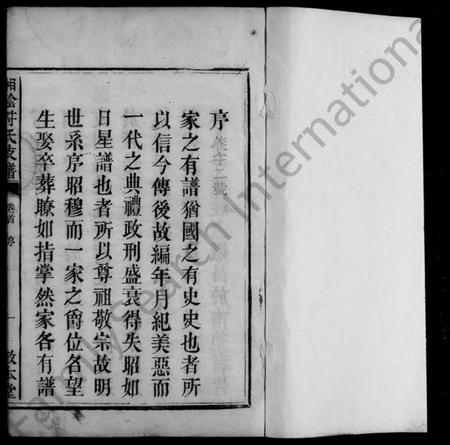 序
家之有譜猶國之有史史也者所
以信今傳後故編年月紀美惡而
一代之典禮政刑盛衰得失昭如
日星譜也者所以尊祖敬宗故明
世系序昭穆而一家之爵位名望
生娶卒葬瞭如指掌然家各有譜
湘陰 氏支譜 卷首 一 本堂
FamilySearch International